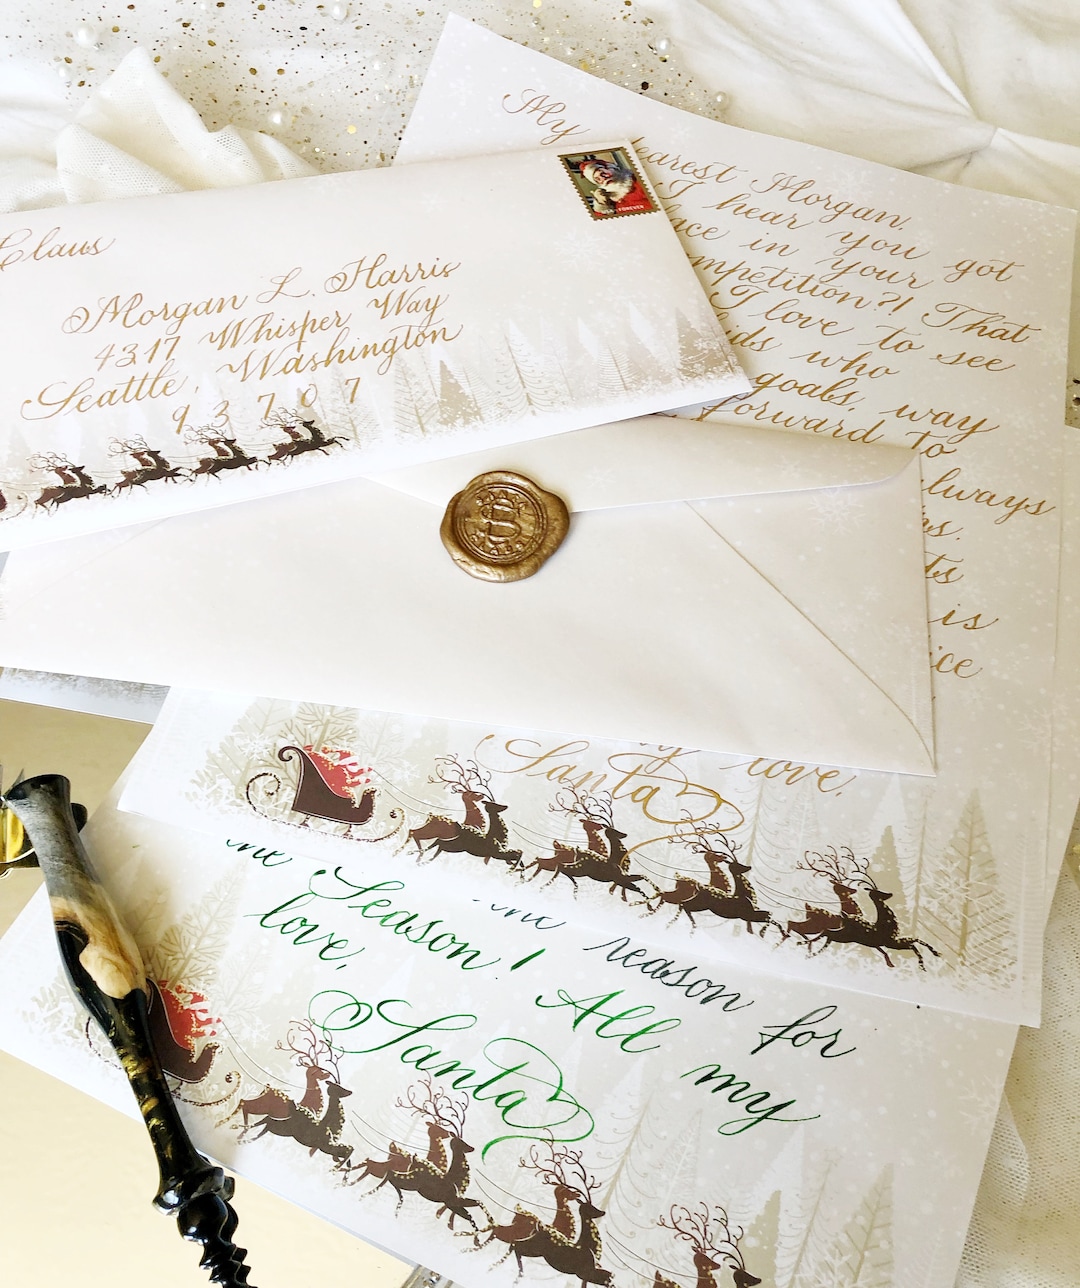 Claus
Morgan L. Harris
4317 Whisper Way
Seattle, Washington
9 3 7 0 7
FOREVER
My earest Morgan,
I hear you got
ace in your
mpetition?! That
I love to see
ids who
goals, way
forward to
lways
is
ice
love,
Santa
the reason for
the Season! All my
love,
Santa